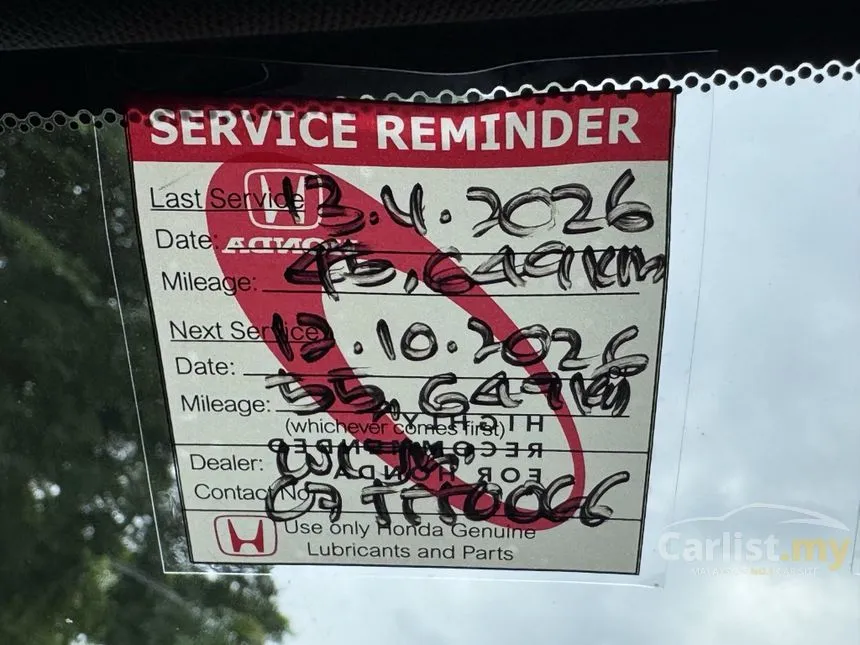 SERVICE REMINDER
Last Service
Date: 13.4.2026
HONDA
Mileage: 45,649KM
Next Service
Date: 13.10.2026
Mileage: 55,649KM
(whichever comes first)
HIGHLY
RECOMMENDED
FOR HONDA
Dealer:
Contact No
Use only Honda Genuine
Lubricants and Parts
Carlist.my